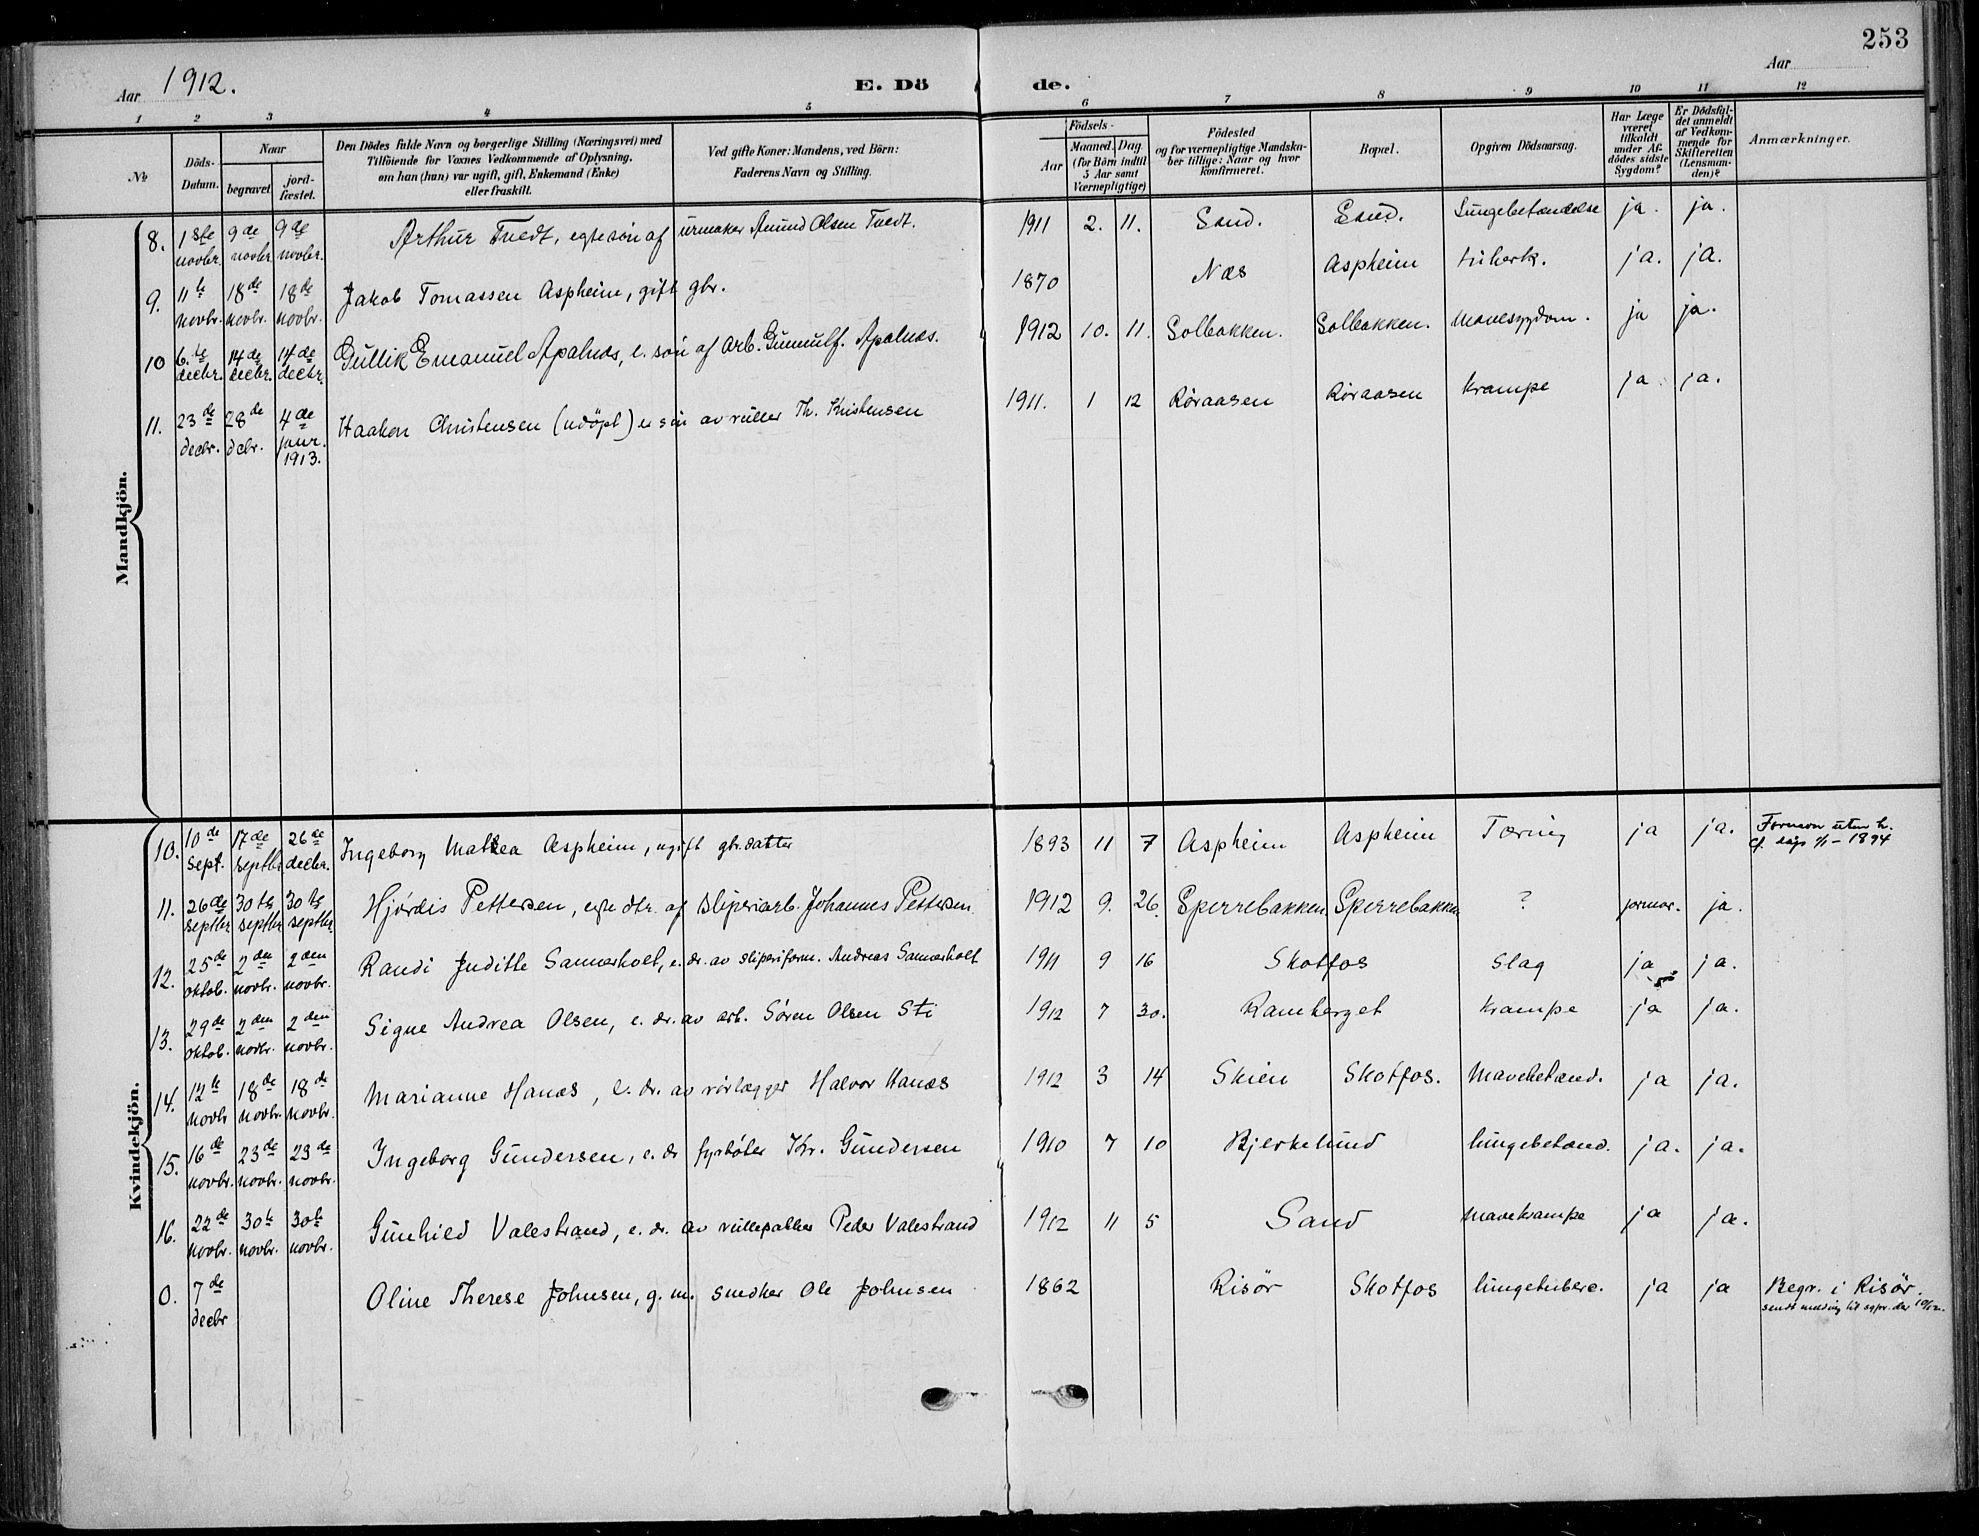 253
Aar 1912.
E. Döde.
Aar
1 2 3 4 5 6 7 8 9 10 11 12
№
Döds-Datum.
Naar
begravet
jord-fæstet.
Den Dödes fulde Navn og borgerlige Stilling (Næringsvei) med
Tilföiende for Voxnes Vedkommende af Oplysning,
om han (hun) var ugift, gift, Enkemand (Enke)
eller fraskilt.
Ved gifte Koner: Mandens, ved Börn:
Faderens Navn og Stilling.
Födsels-
Aar
Maaned. Dag.
(for Börn indtil
5 Aar samt
Værnepligtige)
Födested
og for værnepligtige Mandska-
ber tillige: Naar og hvor
konfirmeret.
Bopæl.
Opgiven Dödsaarsag.
Har Læge
været
tilkaldt
under Af-
dödes sidste
Sygdom?
Er Dödsfal-
det anmeldt
af Vedkom-
mende for
Skifteretten
(Lensman-
den)?
Anmærkninger.
Mandkjön.
8. 1ste novbr. 9de novbr. 9de novbr. Arthur Tvedt, egte søn af urmaker Amund Olsen Tvedt. 1911 2. 11. Sand. Sand. Lungebetændelse ja. ja.
9. 11te novbr. 18de novbr. 18de novbr. Jakob Tomassen Aspheim, gift gbr. 1870 Næs Aspheim tuberk. ja. ja.
10 6.te decbr. 14de decbr. 14de decbr. Gullik Emanuel Apalnæs, e. søn af Arb. Gunnulf. Apalnæs. 1912 10. 11. Solbakken. Solbakken. Mavesygdom. ja ja.
11. 23de decbr. 28de dcbr. 4de janr. 1913. Haakon Christensen (udöpt) e søn av ruller Th. Kristensen 1911. 1 12 Røraasen Røraasen Krampe ja ja.
Kvindekjön.
10. 10de Sept. 17de septbr 26de decbr. Ingeborg Mathea Aspheim, ugift gbr.datter 1893 11 7 Aspheim Aspheim Tæring ja ja. 1894
11. 26de septbr 30te septbr 30te septbr. Hjørdis Pettersen, egte dtr. af Sliperiarb. Johannes Pettersen. 1912 9. 26. Sperrebakken. Sperrebakken ? jormor. ja.
12. 25de oktob. 2den novbr. 2den novbr. Randi Juditte Sannesholt, e. dr. av sliperiform. Andreas Sannesholt 1911 9 16 Skotfos Slag ja ja.
13. 29de oktob. 2den novbr. 2den novbr. Signe Andrea Olsen, e. dr. av arb. Søren Olsen Sti 1912 7 30. Ramberget Krampe ja ja.
14. 12te novbr 18de novbr. 18de novbr. Marianne Hanæs, e. dr. av rörlægger Halvor Hanæs 1912 3 14 Skien Skotfos. Mavebetænd. ja ja.
15. 16de novbr. 23de novbr. 23de novbr. Ingeborg Gundersen, e. dr fyrbøter Kr. Gundersen 1910 7 10 Bjerkelund lungebetænd. ja. ja.
16. 22de novbr. 30te novbr. 30te novbr. Gunhild Valestrand, e. dr. av rullepakker Peder Valestrand 1912 11 5 Sand Mavekrampe ja ja.
0. 7de decbr Oline Therese Johnsen, g. m. snedker Ole Johnsen 1862 Risör Skotfos lungetuberc. ja ja Begr. i Risör.
sendt melding til sgpr. der 10/12.